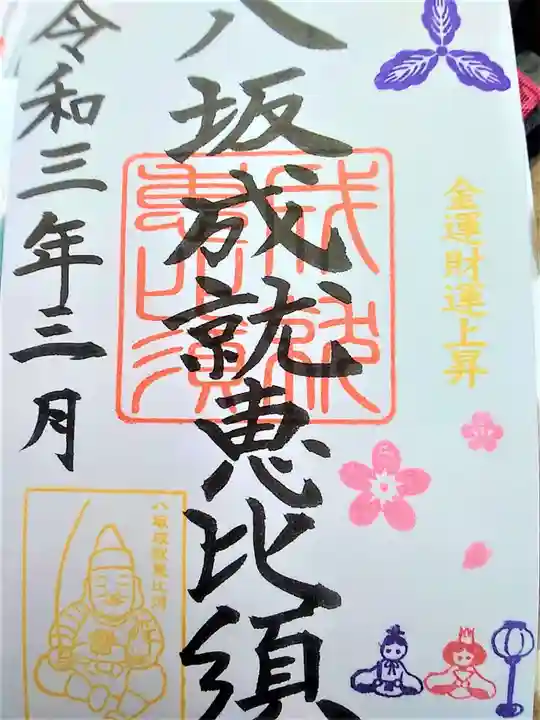 金運財運上昇
八坂成就恵比須
成就恵比須
令和三年三月
八坂成就恵比須